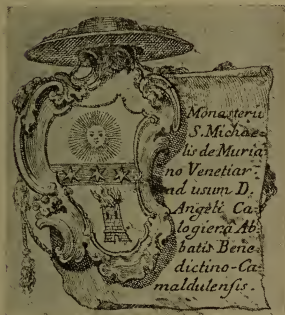 Monasterii
S. Michae-
lis de Muria
no Venetiar.
ad usum D.
Angeli Ca-
logierà Ab-
batis Bene-
dictino-Ca-
maldulensis.